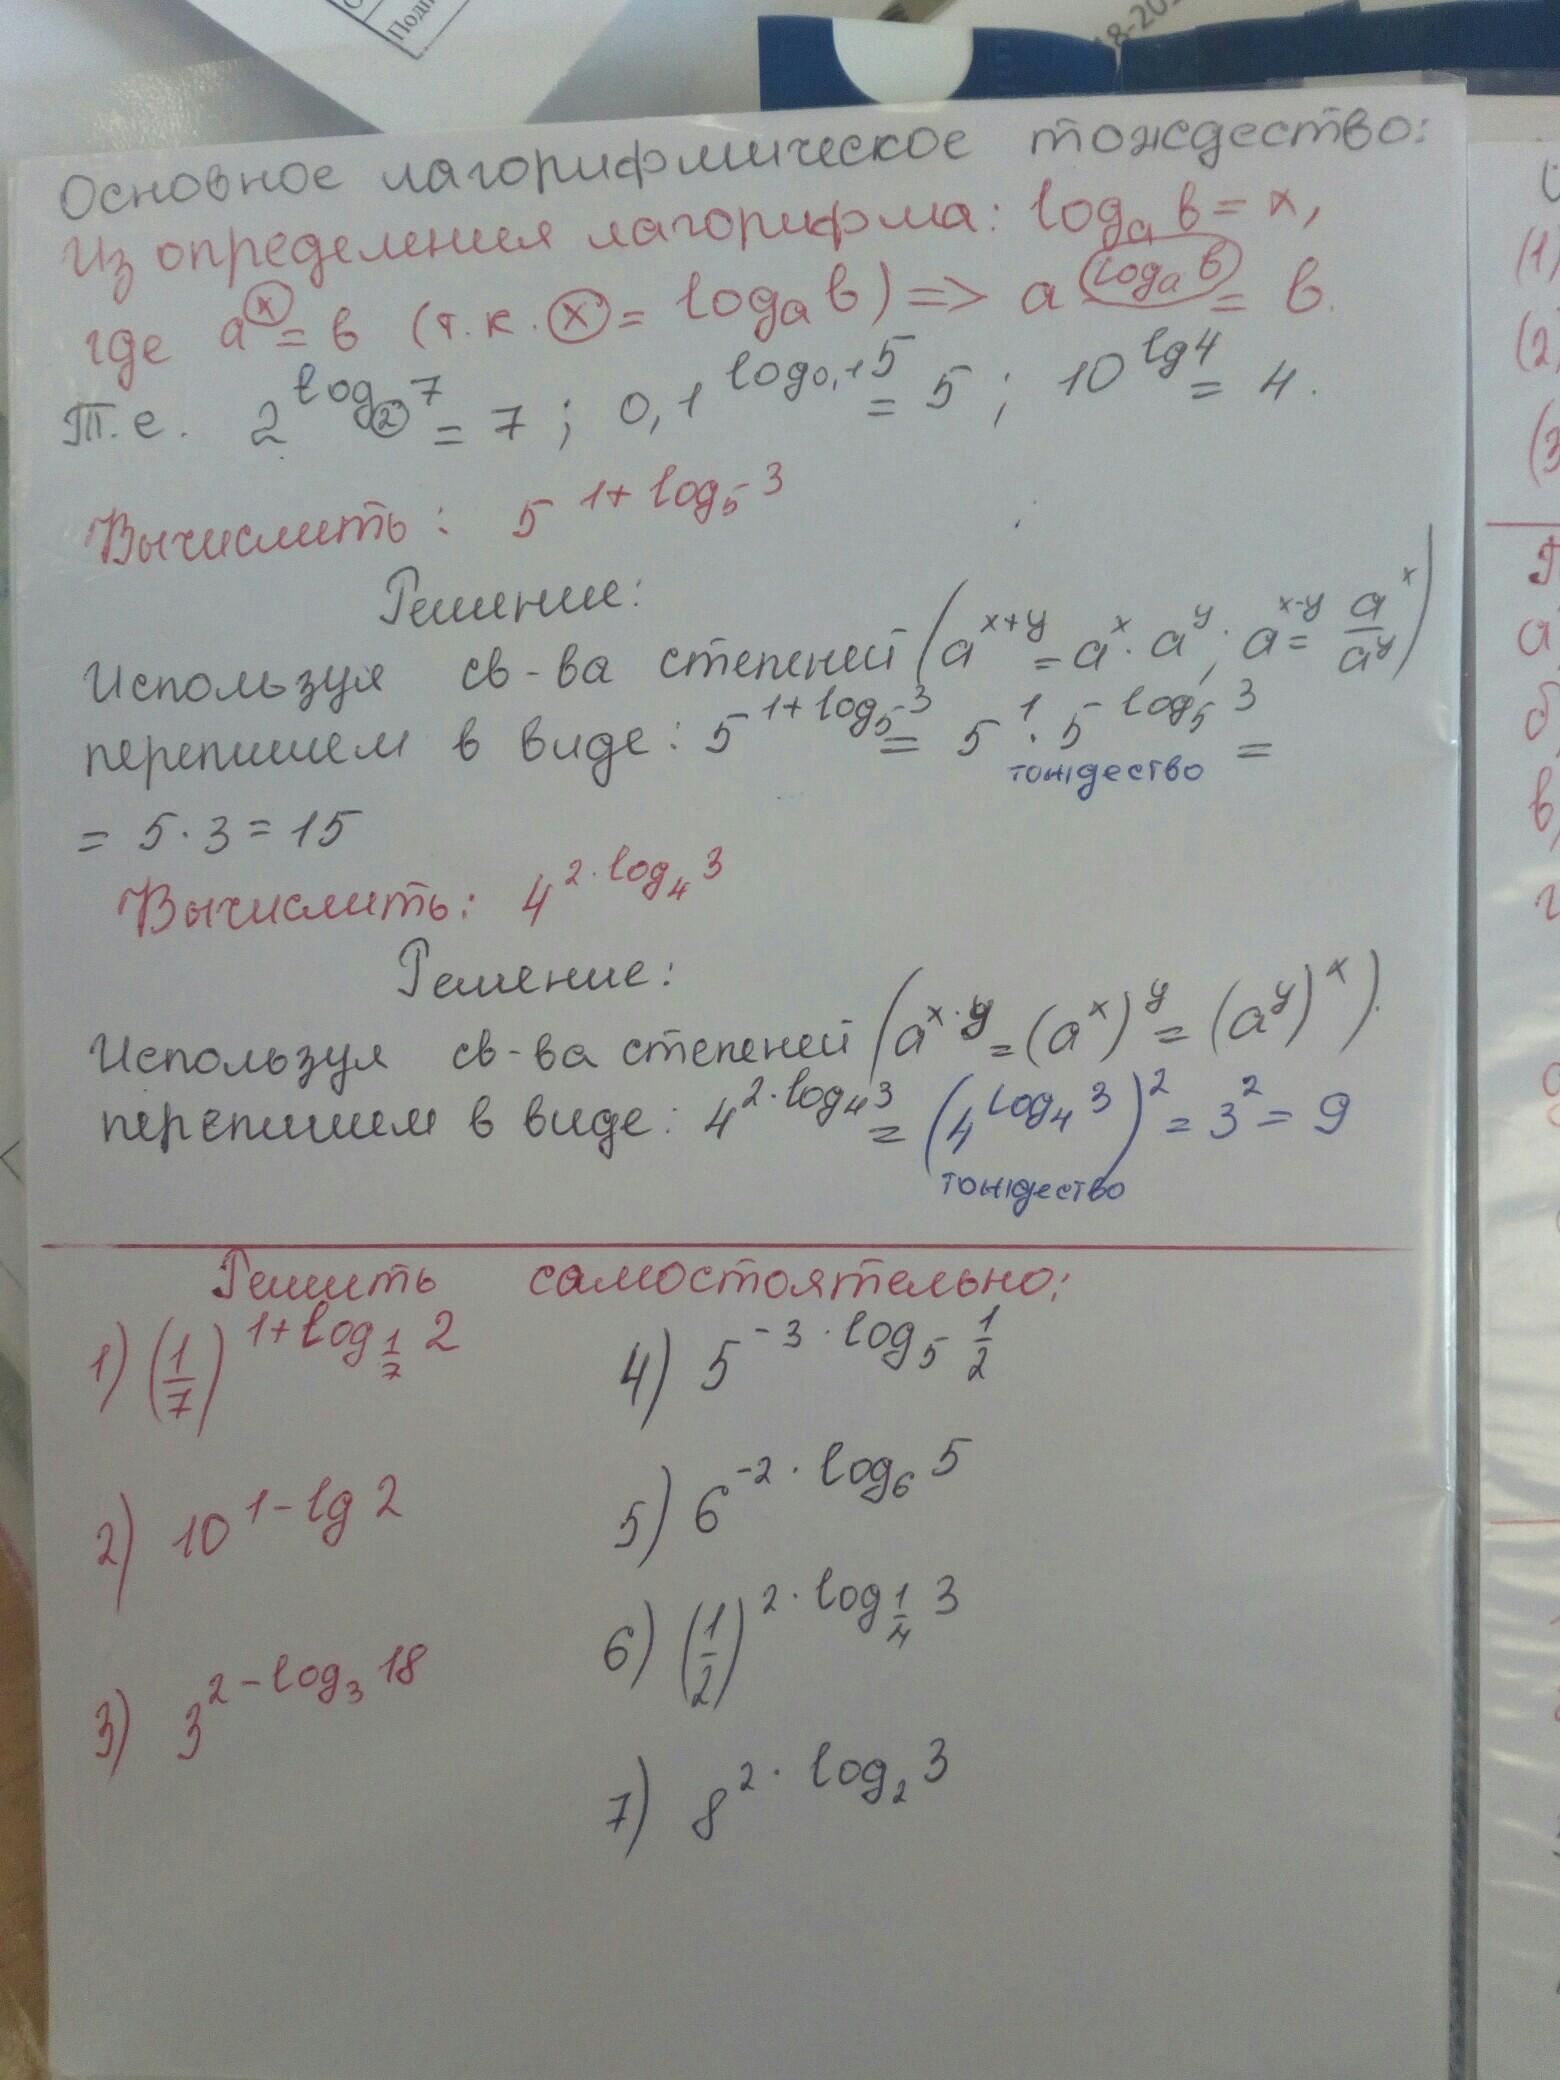 Подп
18-201
Основное лагорифмическое тождество:
Из определения лагорифма: logₐ b = x,
где aˣ = b (т.к. x = logₐ b) => a^(logₐ b) = b.
Т.е. 2^(log₂ 7) = 7; 0,1^(log₀,₁ 5) = 5; 10^(lg 4) = 4.
Вычислить: 5^(1+log₅ 3)
Решение:
Используя св-ва степеней (a^(x+y) = a^x · a^y; a^(x-y) = a^x/a^y)
перепишем в виде: 5^(1+log₅ 3) = 5^1 · 5^(log₅ 3) =
тождество
= 5·3 = 15
Вычислить: 4^(2·log₄ 3)
Решение:
Используя св-ва степеней (a^(x·y) = (a^x)^y = (a^y)^x).
перепишем в виде: 4^(2·log₄ 3) = (4^(log₄ 3))^2 = 3^2 = 9
тождество
Решить самостоятельно:
1) (1/7)^(1+log_(1/7) 2)
4) 5^(-3·log₅ 1/2)
2) 10^(1-lg 2)
5) 6^(-2·log₆ 5)
3) 3^(2-log₃ 18)
6) (1/2)^(2·log_(1/4) 3)
7) 8^(2·log₂ 3)
(1)
(2
(3
а
б
в
г